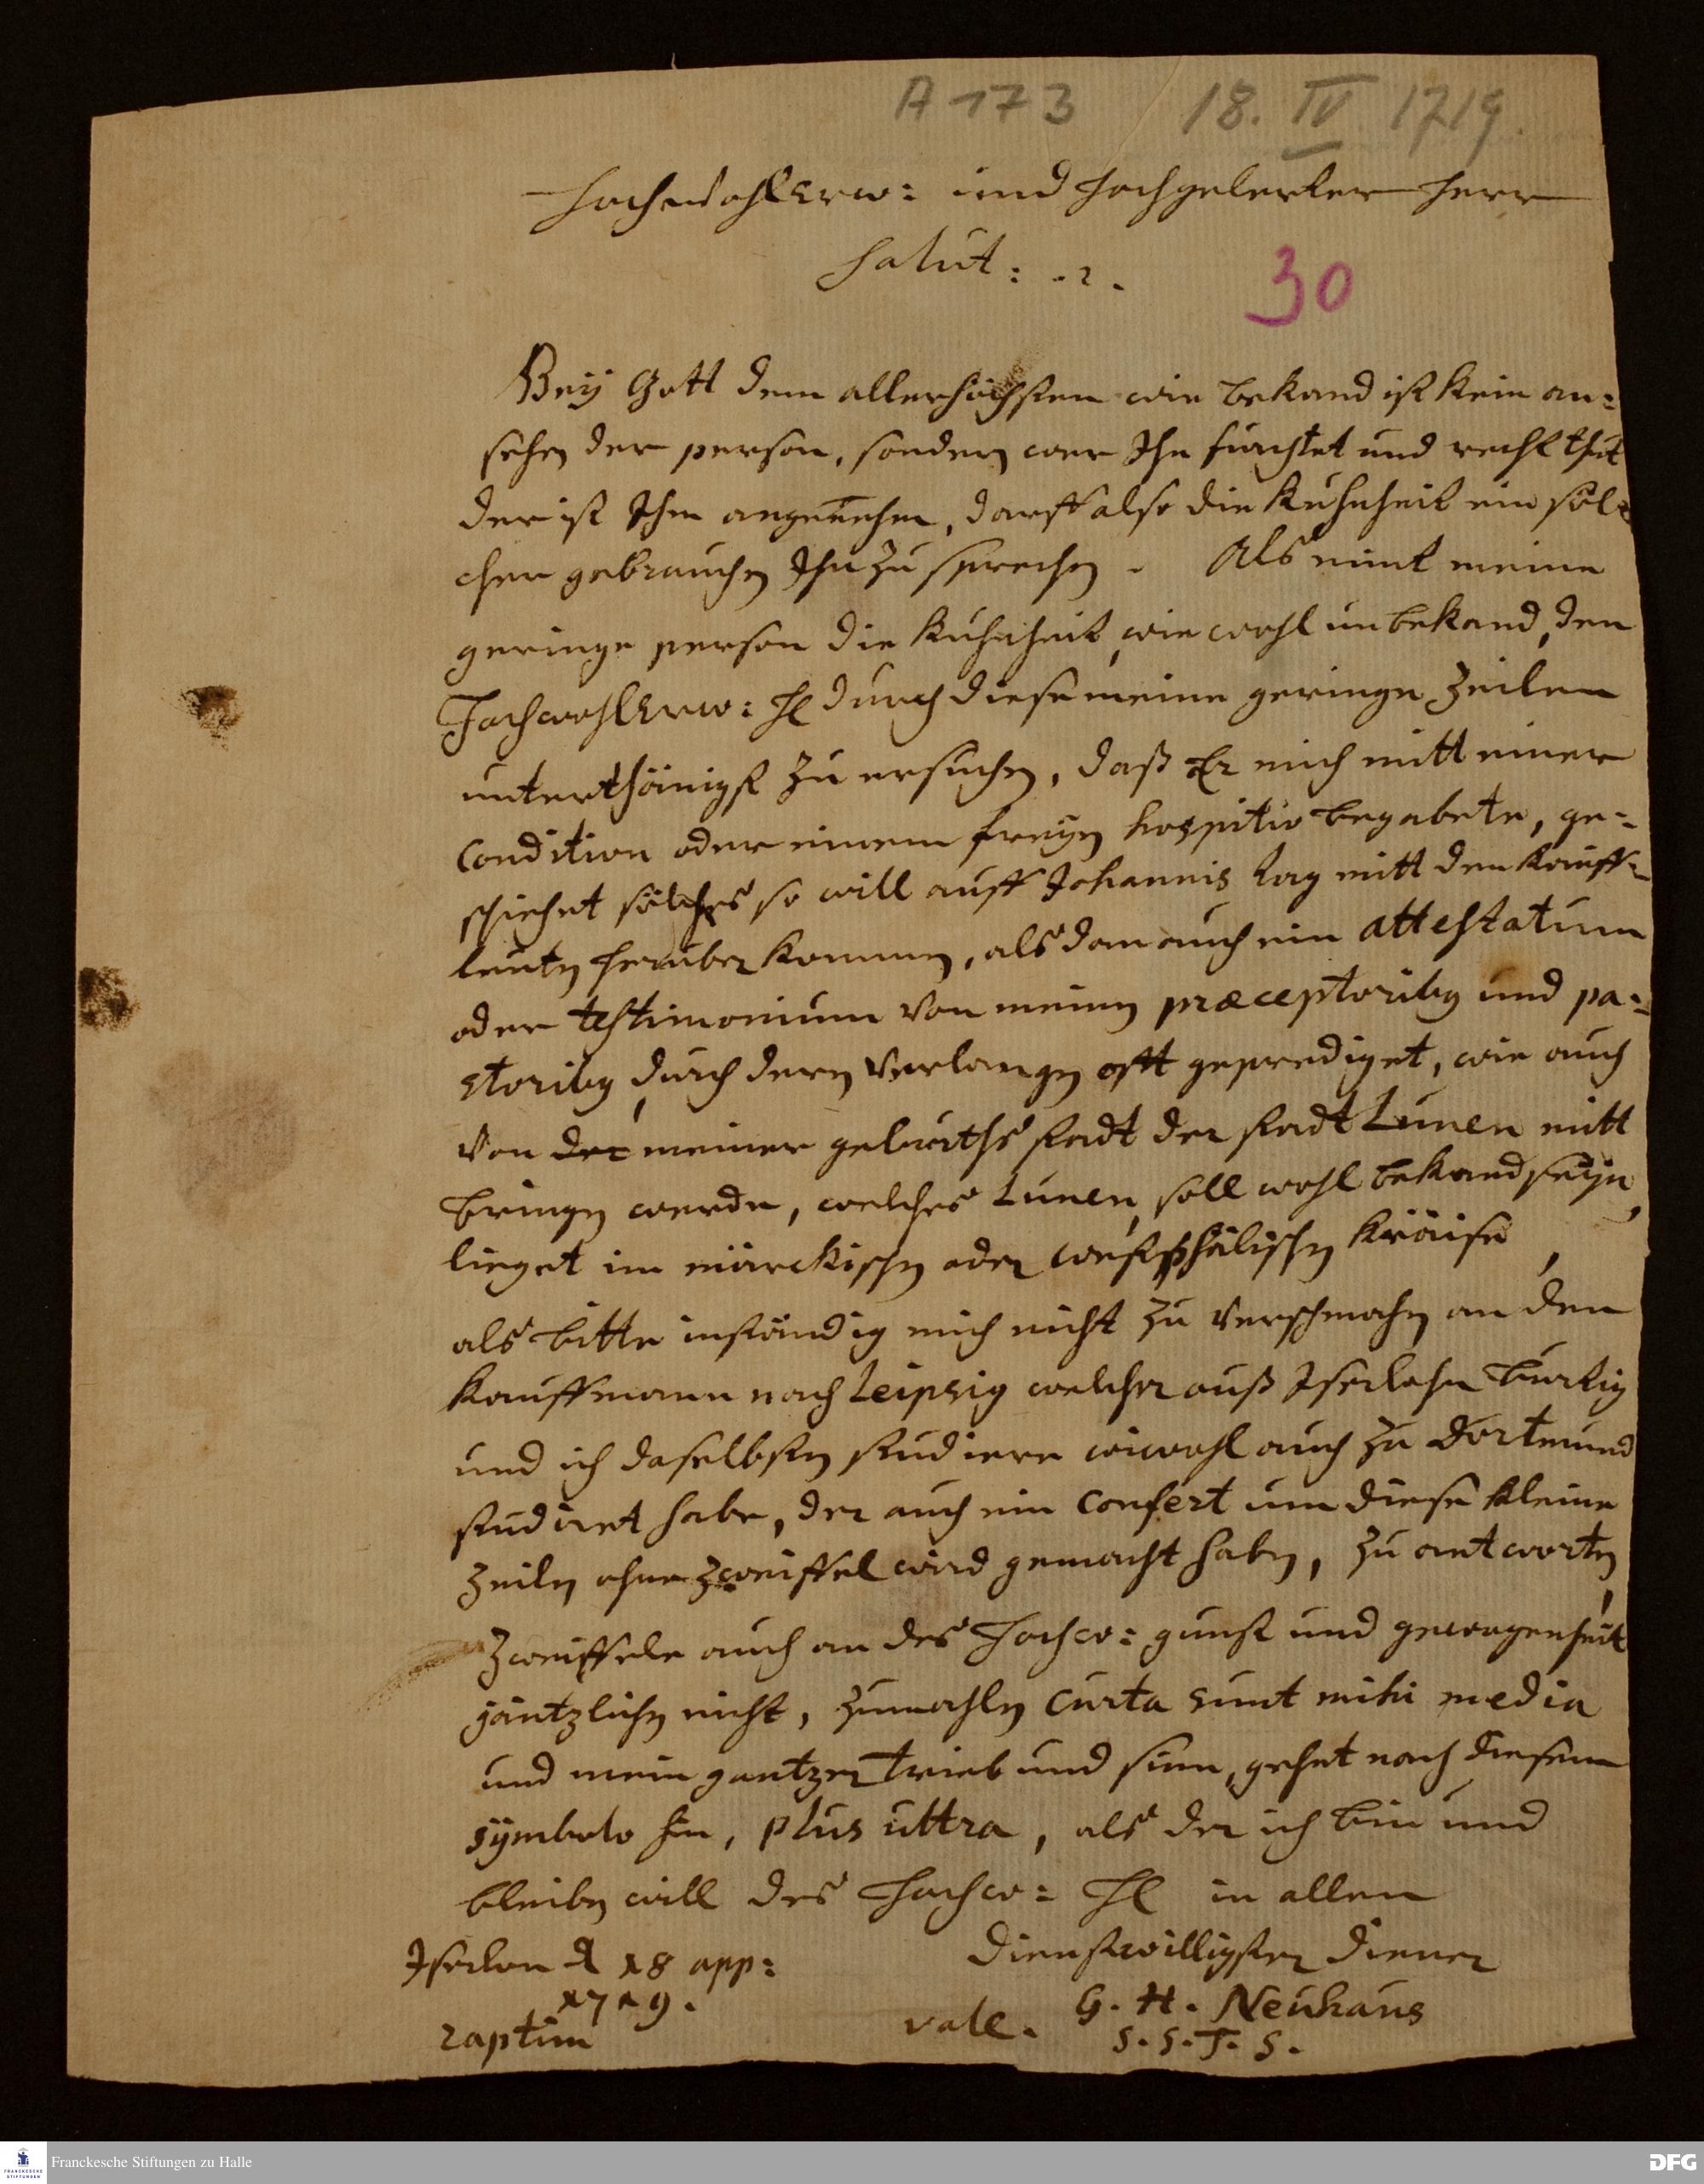 A 173 18. IV 1719.
HochwohlErw: und hochgelerter Herr
Salut: . .
30
Beÿ Gott dem allerhöchsten wie bekand ist kein an=
sehen der person, sondern wer Ihn furchtet und recht thut
der ist Ihm angenehm, darff also die Kuhnheit ein sol=
cher gebrauchen Ihn zu sprechen. Als nimt meine
geringe person die Kuhnheit, wiewohl unbekand, den
HochwohlErw: H durch diese meine geringe Zeilen
unterthänigst zu ersuchen, daß Er mich mitt einer
Condition oder einem freÿen hospitio begabete, ge=
schiehet solches so will auff Johannis tag mitt den Kauff=
leuten heruber kommen, alsdan auch ein attestatum
oder testimonium von meinen præceptoribus und pa=
storibus, durch deren Verlangen offt geprediget, wie auch
von der meiner geburthsstadt der stadt Lunen mitt
bringen werde, welches Lunen, soll wohl bekand seÿn,
lieget im märckischen oder westphälischen Kräise,
als bitte inständig mich nicht zu verschmahen an den
Kauffmann nach Leipzig welcher auß Iserlohn burtig
und ich daselbsten studiere wiewohl auch zu Dortmund
studiret habe, der auch ein Confert um diese kleine
Zeilen ohne zweiffel wird gemacht haben, zu antworten,
Zweiffele auch an des Hochw: gunst und gewogenheit
jäntzlichen nicht, zumahlen curta sunt mihi media
und mein gantzer Trieb und sinn, gehet nach diesem
sÿmbolo hin, plus ultra, als der ich bin und
bleiben will des Hochw: H in allem
Iserlon d 18 app: dienstwilligster diener
1719. G. H. Neuhaus
raptim vale. S. S. T. S.
Franckesche Stiftungen zu Halle
FRANCKESCHE STIFTUNGEN
DFG